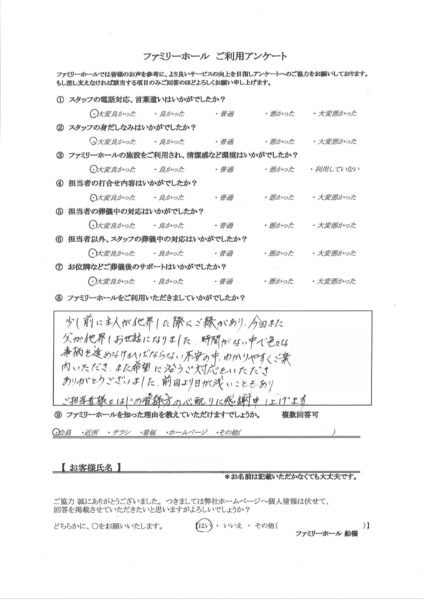 ファミリーホール ご利用アンケート
ファミリーホールでは皆様のお声を参考に、より良いサービスの向上を目指しアンケートへのご協力をお願いしております。
もし差し支えなければ該当する項目のみご回答のほどよろしくお願い申し上げます。
① スタッフの電話対応、言葉遣いはいかがでしたか？
・大変良かった ・良かった ・普通 ・悪かった ・大変悪かった
② スタッフの身だしなみはいかがでしたか？
・大変良かった ・良かった ・普通 ・悪かった ・大変悪かった
③ ファミリーホールの施設をご利用され、清潔感など環境はいかがでしたか？
・大変良かった ・良かった ・普通 ・悪かった ・利用していない
④ 担当者の打合せ内容はいかがでしたか？
・大変良かった ・良かった ・普通 ・悪かった ・大変悪かった
⑤ 担当者の葬儀中の対応はいかがでしたか？
・大変良かった ・良かった ・普通 ・悪かった ・大変悪かった
⑥ 担当者以外、スタッフの葬儀中の対応はいかがでしたか？
・大変良かった ・良かった ・普通 ・悪かった ・大変悪かった
⑦ お位牌などご葬儀後のサポートはいかがでしたか？
・大変良かった ・良かった ・普通 ・悪かった ・大変悪かった
⑧ ファミリーホールをご利用いただきましていかがでしたか？
少し前に主人が他界した際にご縁があり、今回また
父が他界しお世話になりました。時間がない中で色々な
事柄を進めなければならない不安の中、わかりやすくご案
内いただき、また希望に沿うご対応をいただき
ありがとうございました。前回より日が浅いこともあり
ご担当者様をはじめ皆様方の心配りに感謝申し上げます
⑨ ファミリーホールを知った理由を教えていただけますでしょうか。 複数回答可
・会員 ・近所 ・チラシ ・看板 ・ホームページ ・その他( )
【 お客様氏名 】
＊お名前は記載いただかなくても大丈夫です。
ご協力 誠にありがとうございました。 つきましては弊社ホームページへ個人情報は伏せて、
回答を掲載させていただきたいと思いますがよろしいでしょうか？
どちらかに、○をお願いいたします。 【はい ・ いいえ ・ その他( )】
ファミリーホール 船橋